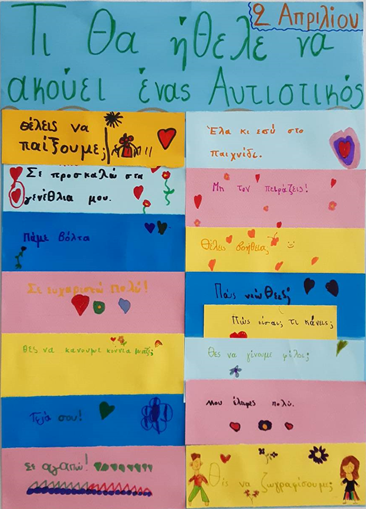 2 Απριλίου
Τι θα ήθελε να
ακούει ένας Αυτιστικός
Θέλεις να
παίξουμε;
Σε προσκαλώ στα
γενέθλια μου.
Πάμε βόλτα
Σε ευχαριστώ πολύ!
Θες να κάνουμε κούνια μαζί;
Γεια σου!
Σε αγαπώ!
Έλα κι εσύ στο
παιχνίδι.
Μη τον πειράζεις!
Θέλεις βοήθεια;
Πώς νιώθεις;
Πώς είσαι; τι κάνεις;
Θες να γίνουμε φίλοι;
Μου έλειψες πολύ.
Θες να ζωγραφίσουμε;